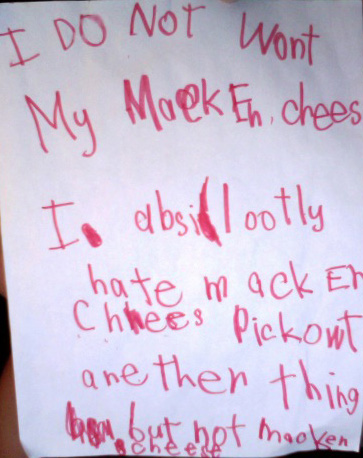 I DO NOT Wont
My Maek En. chees
I absillootly
hate mack En
Chhees Pickowt
anethen thing
but not macken
cheese